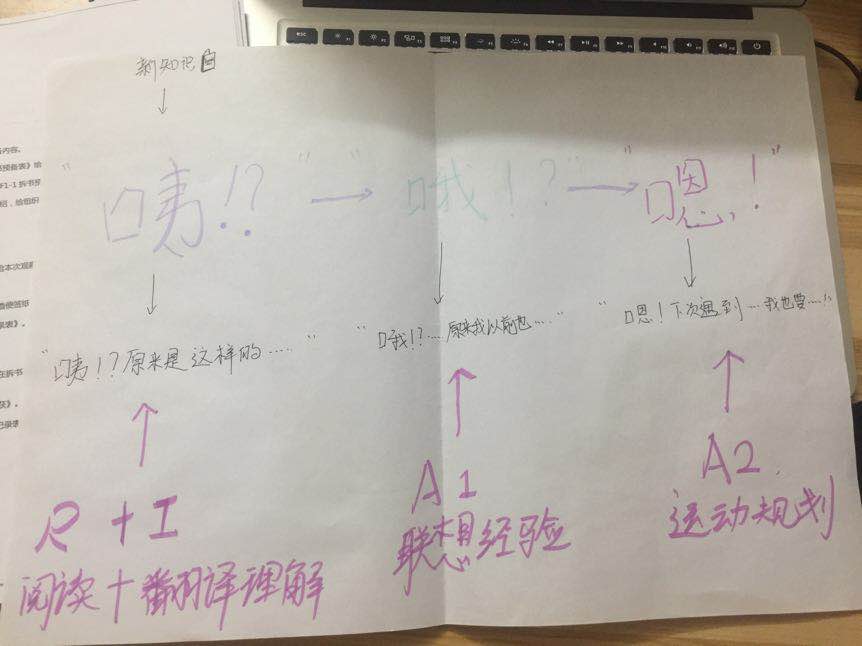 新知识
"咦!?" → "哦!?" → "嗯!"
"咦!?原来是这样的……"
"哦!?…原来我以前也……"
"嗯!下次遇到…我也要……"
R + I
阅读+翻译理解
A1
联想经验
A2
运动规划